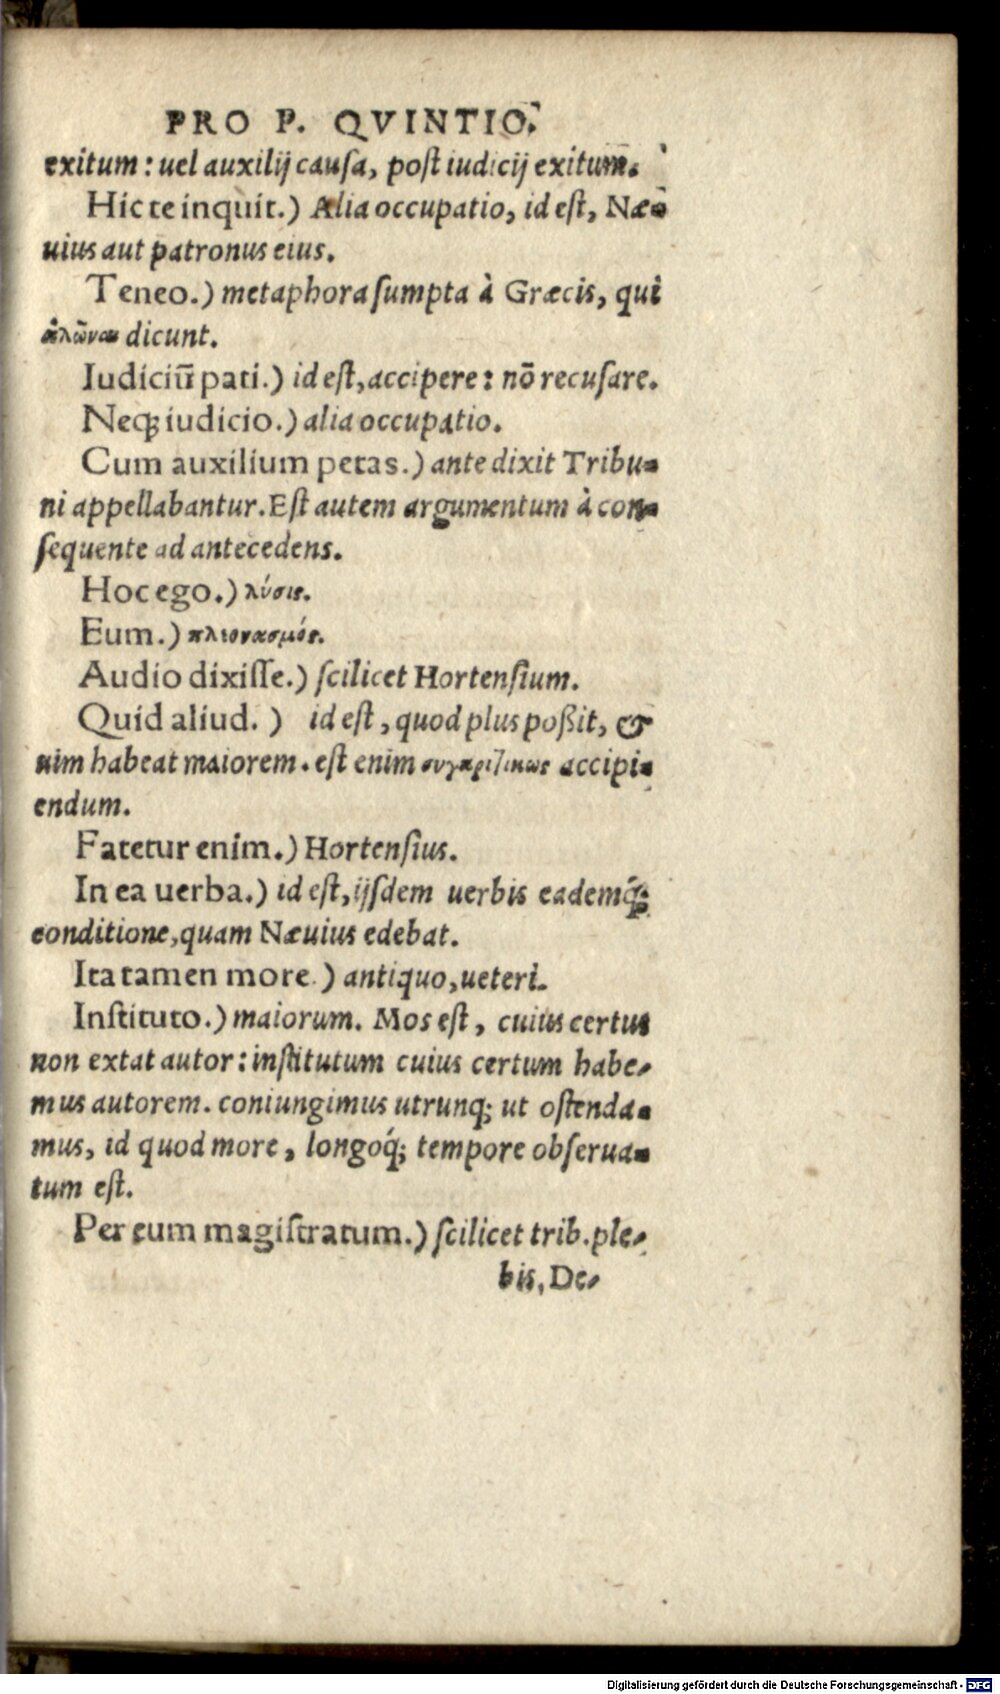 PRO P. QVINTIO.
exitum: uel auxilij cauſa, poſt iudicij exitum.
Hic te inquit.) Alia occupatio, id eſt, Næ-
uius aut patronus eius.
Teneo.) metaphora ſumpta à Græcis, qui
ἁλῶναι dicunt.
Iudiciū pati.) id eſt, accipere: nō recuſare.
Neq; iudicio.) alia occupatio.
Cum auxilium petas.) ante dixit Tribu-
ni appellabantur. Eſt autem argumentum à con-
ſequente ad antecedens.
Hoc ego.) λύσις.
Eum.) πλεονασμός.
Audio dixiſſe.) ſcilicet Hortenſium.
Quid aliud.) id eſt, quod plus poßit, &
uim habeat maiorem. eſt enim συγκριτικῶς accipi-
endum.
Fatetur enim.) Hortenſius.
In ea uerba.) id eſt, ijſdem uerbis eademq́;
conditione, quam Næuius edebat.
Ita tamen more.) antiquo, ueteri.
Inſtituto.) maiorum. Mos eſt, cuius certus
non extat autor: inſtitutum cuius certum habe-
mus autorem. coniungimus utrunq; ut oſtenda-
mus, id quod more, longoq́; tempore obſerua-
tum eſt.
Per eum magiſtratum.) ſcilicet trib. ple-
bis, De-
Digitalisierung gefördert durch die Deutsche Forschungsgemeinschaft - DFG